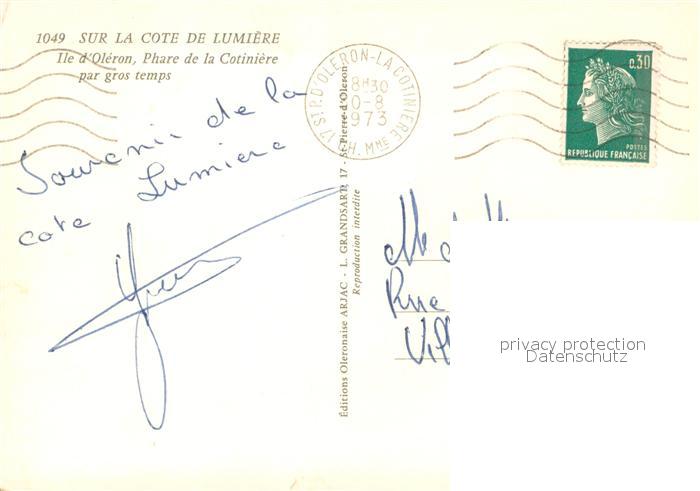 1049 SUR LA COTE DE LUMIÈRE
Ile d'Oléron, Phare de la Cotinière
par gros temps
Souvenir de la
cote Lumiere
17 ST P. D'OLERON-LA COTINIERE
8H30
0-8
1973
CH. MME
0,30
POSTES
REPUBLIQUE FRANÇAISE
Éditions Oleronaise ARJAC - L. GRANDSART, 17 - St-Pierre-d'Oleron
Reproduction interdite
Rue
privacy protection
Datenschutz